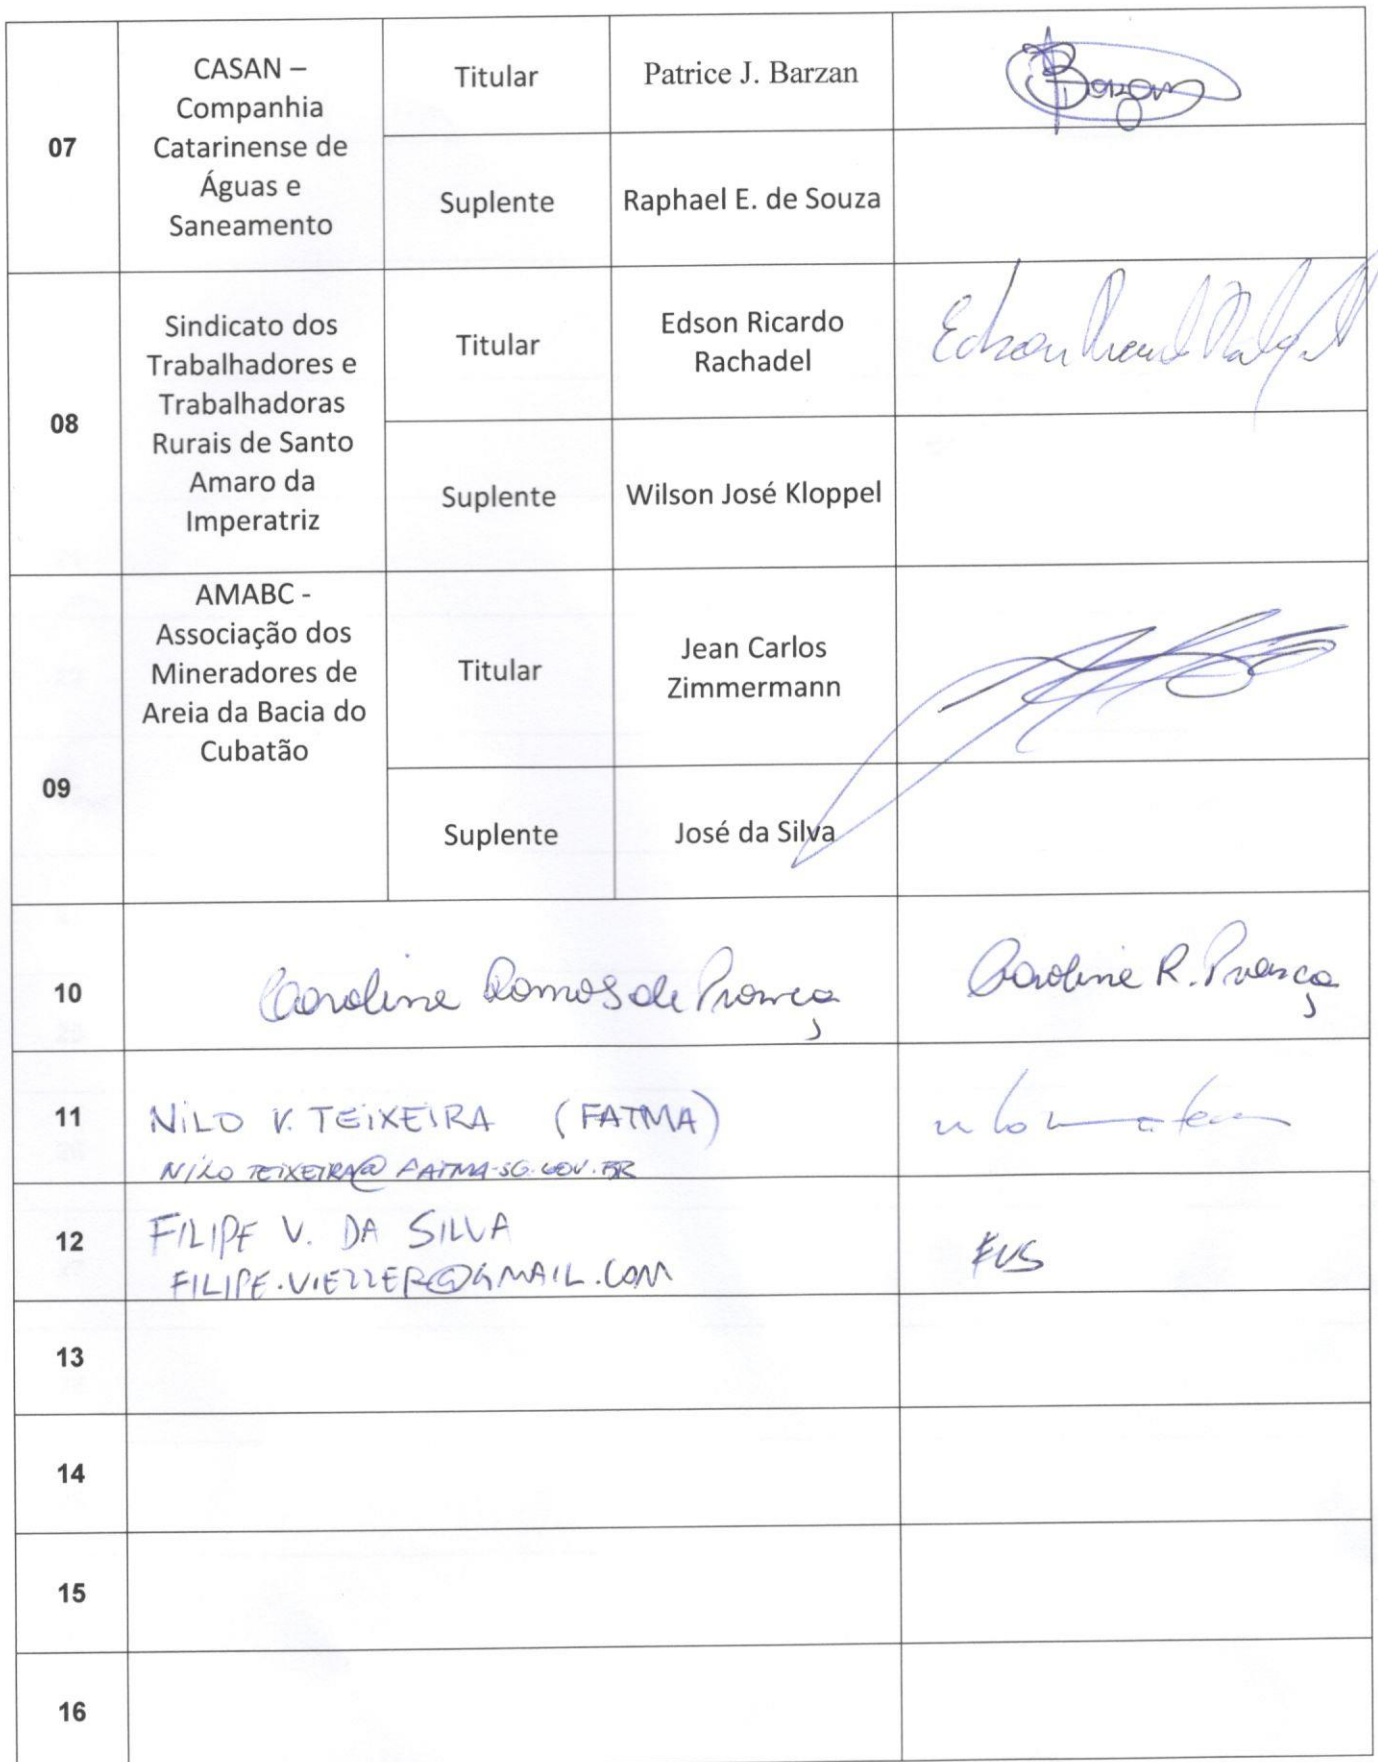 07
CASAN –
Companhia
Catarinense de
Águas e
Saneamento
Titular
Patrice J. Barzan
Barzan
Suplente
Raphael E. de Souza
08
Sindicato dos
Trabalhadores e
Trabalhadoras
Rurais de Santo
Amaro da
Imperatriz
Titular
Edson Ricardo
Rachadel
Edson
Suplente
Wilson José Kloppel
09
AMABC -
Associação dos
Mineradores de
Areia da Bacia do
Cubatão
Titular
Jean Carlos
Zimmermann
Suplente
José da Silva
10
Caroline Ramos de Proença
Caroline R. Proença
11
NILO V. TEIXEIRA (FATMA)
NILO TEIXEIRA@FATMA-SC.GOV.BR
12
FILIPE V. DA SILVA
FILIPE.VIEZZER@GMAIL.COM
FVS
13
14
15
16